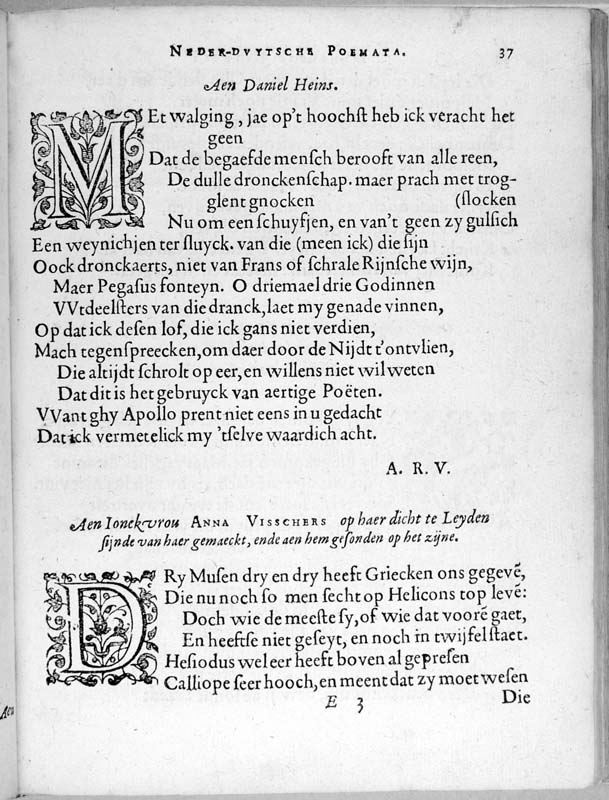 NEDER-DVYTSCHE POEMATA. 37
Aen Daniel Heins.
MEt walging, jae op't hoochst heb ick veracht het
geen
Dat de begaefde mensch berooft van alle reen,
De dulle dronckenschap. maer prach met trog-
glent gnocken (slocken
Nu om een schuyfjen, en van't geen zy gulsich
Een weynichjen ter sluyck. van die (meen ick) die sijn
Oock dronckaerts, niet van Frans of schrale Rijnsche wijn,
Maer Pegasus fonteyn. O driemael drie Godinnen
VVtdeelsters van die dranck, laet my genade vinnen,
Op dat ick desen lof, die ick gans niet verdien,
Mach tegenspreecken, om daer door de Nijdt t'ontvlien,
Die altijdt schrolt op eer, en willens niet wil weten
Dat dit is het gebruyck van aertige Poëten.
VVant ghy Apollo prent niet eens in u gedacht
Dat ick vermetelick my 'tselve waardich acht.
A. R. V.
Aen Ionckvrou ANNA VISSCHERS op haer dicht te Leyden
sijnde van haer gemaeckt, ende aen hem gesonden op het zijne.
DRy Musen dry en dry heeft Griecken ons gegevẽ,
Die nu noch so men secht op Helicons top levẽ:
Doch wie de meeste sy, of wie dat voorẽ gaet,
En heeftse niet geseyt, en noch in twijfel staet.
Hesiodus wel eer heeft boven al gepresen
Calliope seer hooch, en meent dat zy moet wesen
E 3 Die
Aen